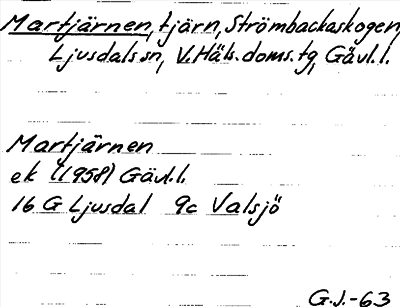 Martjärnen, tjärn, Strömbackaskogen,
Ljusdals sn, V. Häls. doms. tg, Gävl. l.
Martjärnen
ek (1958) Gävl. l.
16 G Ljusdal 9c Valsjö
G.J.-63